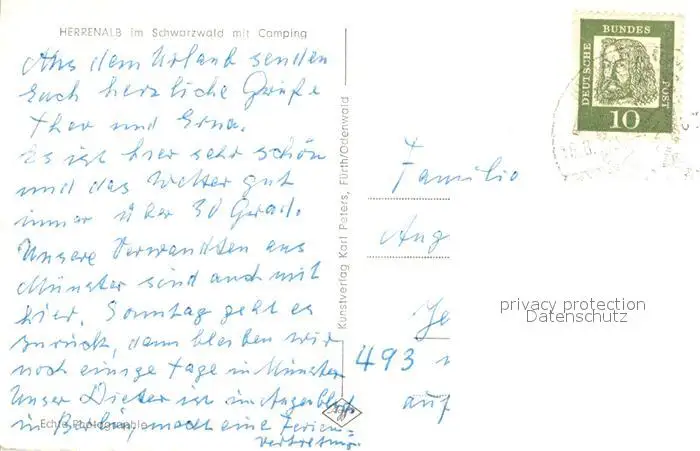 HERRENALB im Schwarzwald mit Camping
Aus dem Urlaub senden
Euch herzliche Grüße
Theo und Erna.
Es ist hier sehr schön
und das Wetter gut
immer über 30 Grad.
Unsere Verwandten aus
Münster sind auch mit
hier. Sonntag geht es
zurück, dann bleiben wir
noch einige Tage in Münster
Unser Dieter ist im Augenblick
in Berlin, macht eine Ferien-
vertretung.
Echte Photographie
Kunstverlag Karl Peters, Fürth/Odenwald
DEUTSCHE BUNDES POST
10
Familie
Aug
493
auf
privacy protection
Datenschutz